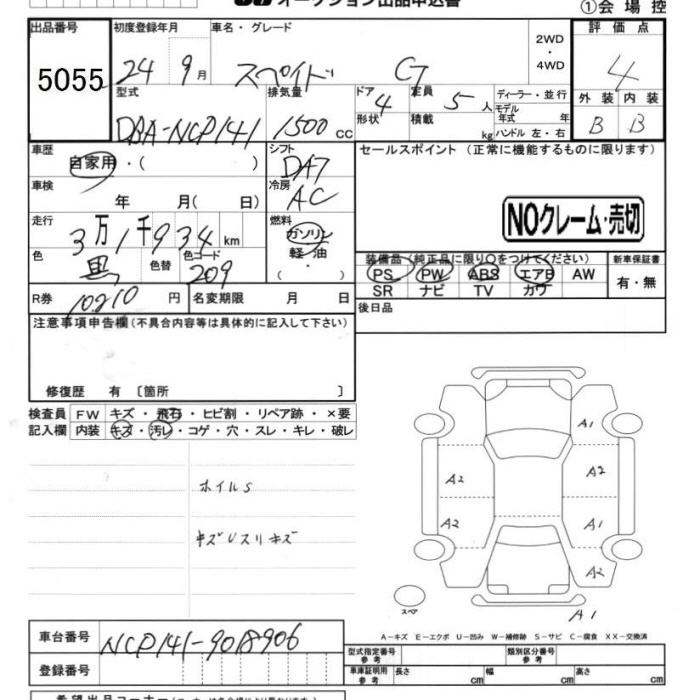 オークション出品申込書
①会場控
出品番号 初度登録年月 車名・グレード 2WD・4WD 評価点
5055 24年9月 スペイド G 4
型式 排気量 ドア 4 定員 5人 ディーラー・並行 外装 内装
DBA-NCP141 1500cc 形状 積載 kg モデル年式 年 B B
ハンドル 左・右
車歴 シフト セールスポイント (正常に機能するものに限ります)
自家用・( ) DA7
車検 年 月( 日) 冷房 AC
NOクレーム・売切
走行 3万1千934km 燃料 ガソリン
軽・油
・( )
色 黒 色替 色コード 209
装備品(純正品に限り○をつけてください) 新車保証書
PS PW ABS エアB AW 有・無
SR ナビ TV カワ
R券 10210円 名変期限 月 日 後日品
注意事項申告欄(不具合内容等は具体的に記入して下さい)
修復歴 有 〔箇所 〕
検査員 FW キズ・飛石・ヒビ割・リペア跡・×要
記入欄 内装 キズ・汚レ・コゲ・穴・スレ・キレ・破レ
ホイルS
キズUスリキズ
A1
A2 A2
A2 A1
A2
スペア A1
A-キズ E-エクボ U-凹み W-補修跡 S-サビ C-腐食 XX-交換済
車台番号 NCP141-9018906
型式指定番号 参考 類別区分番号 参考
登録番号 車庫証明用 参考 長さ cm 幅 cm 高さ cm